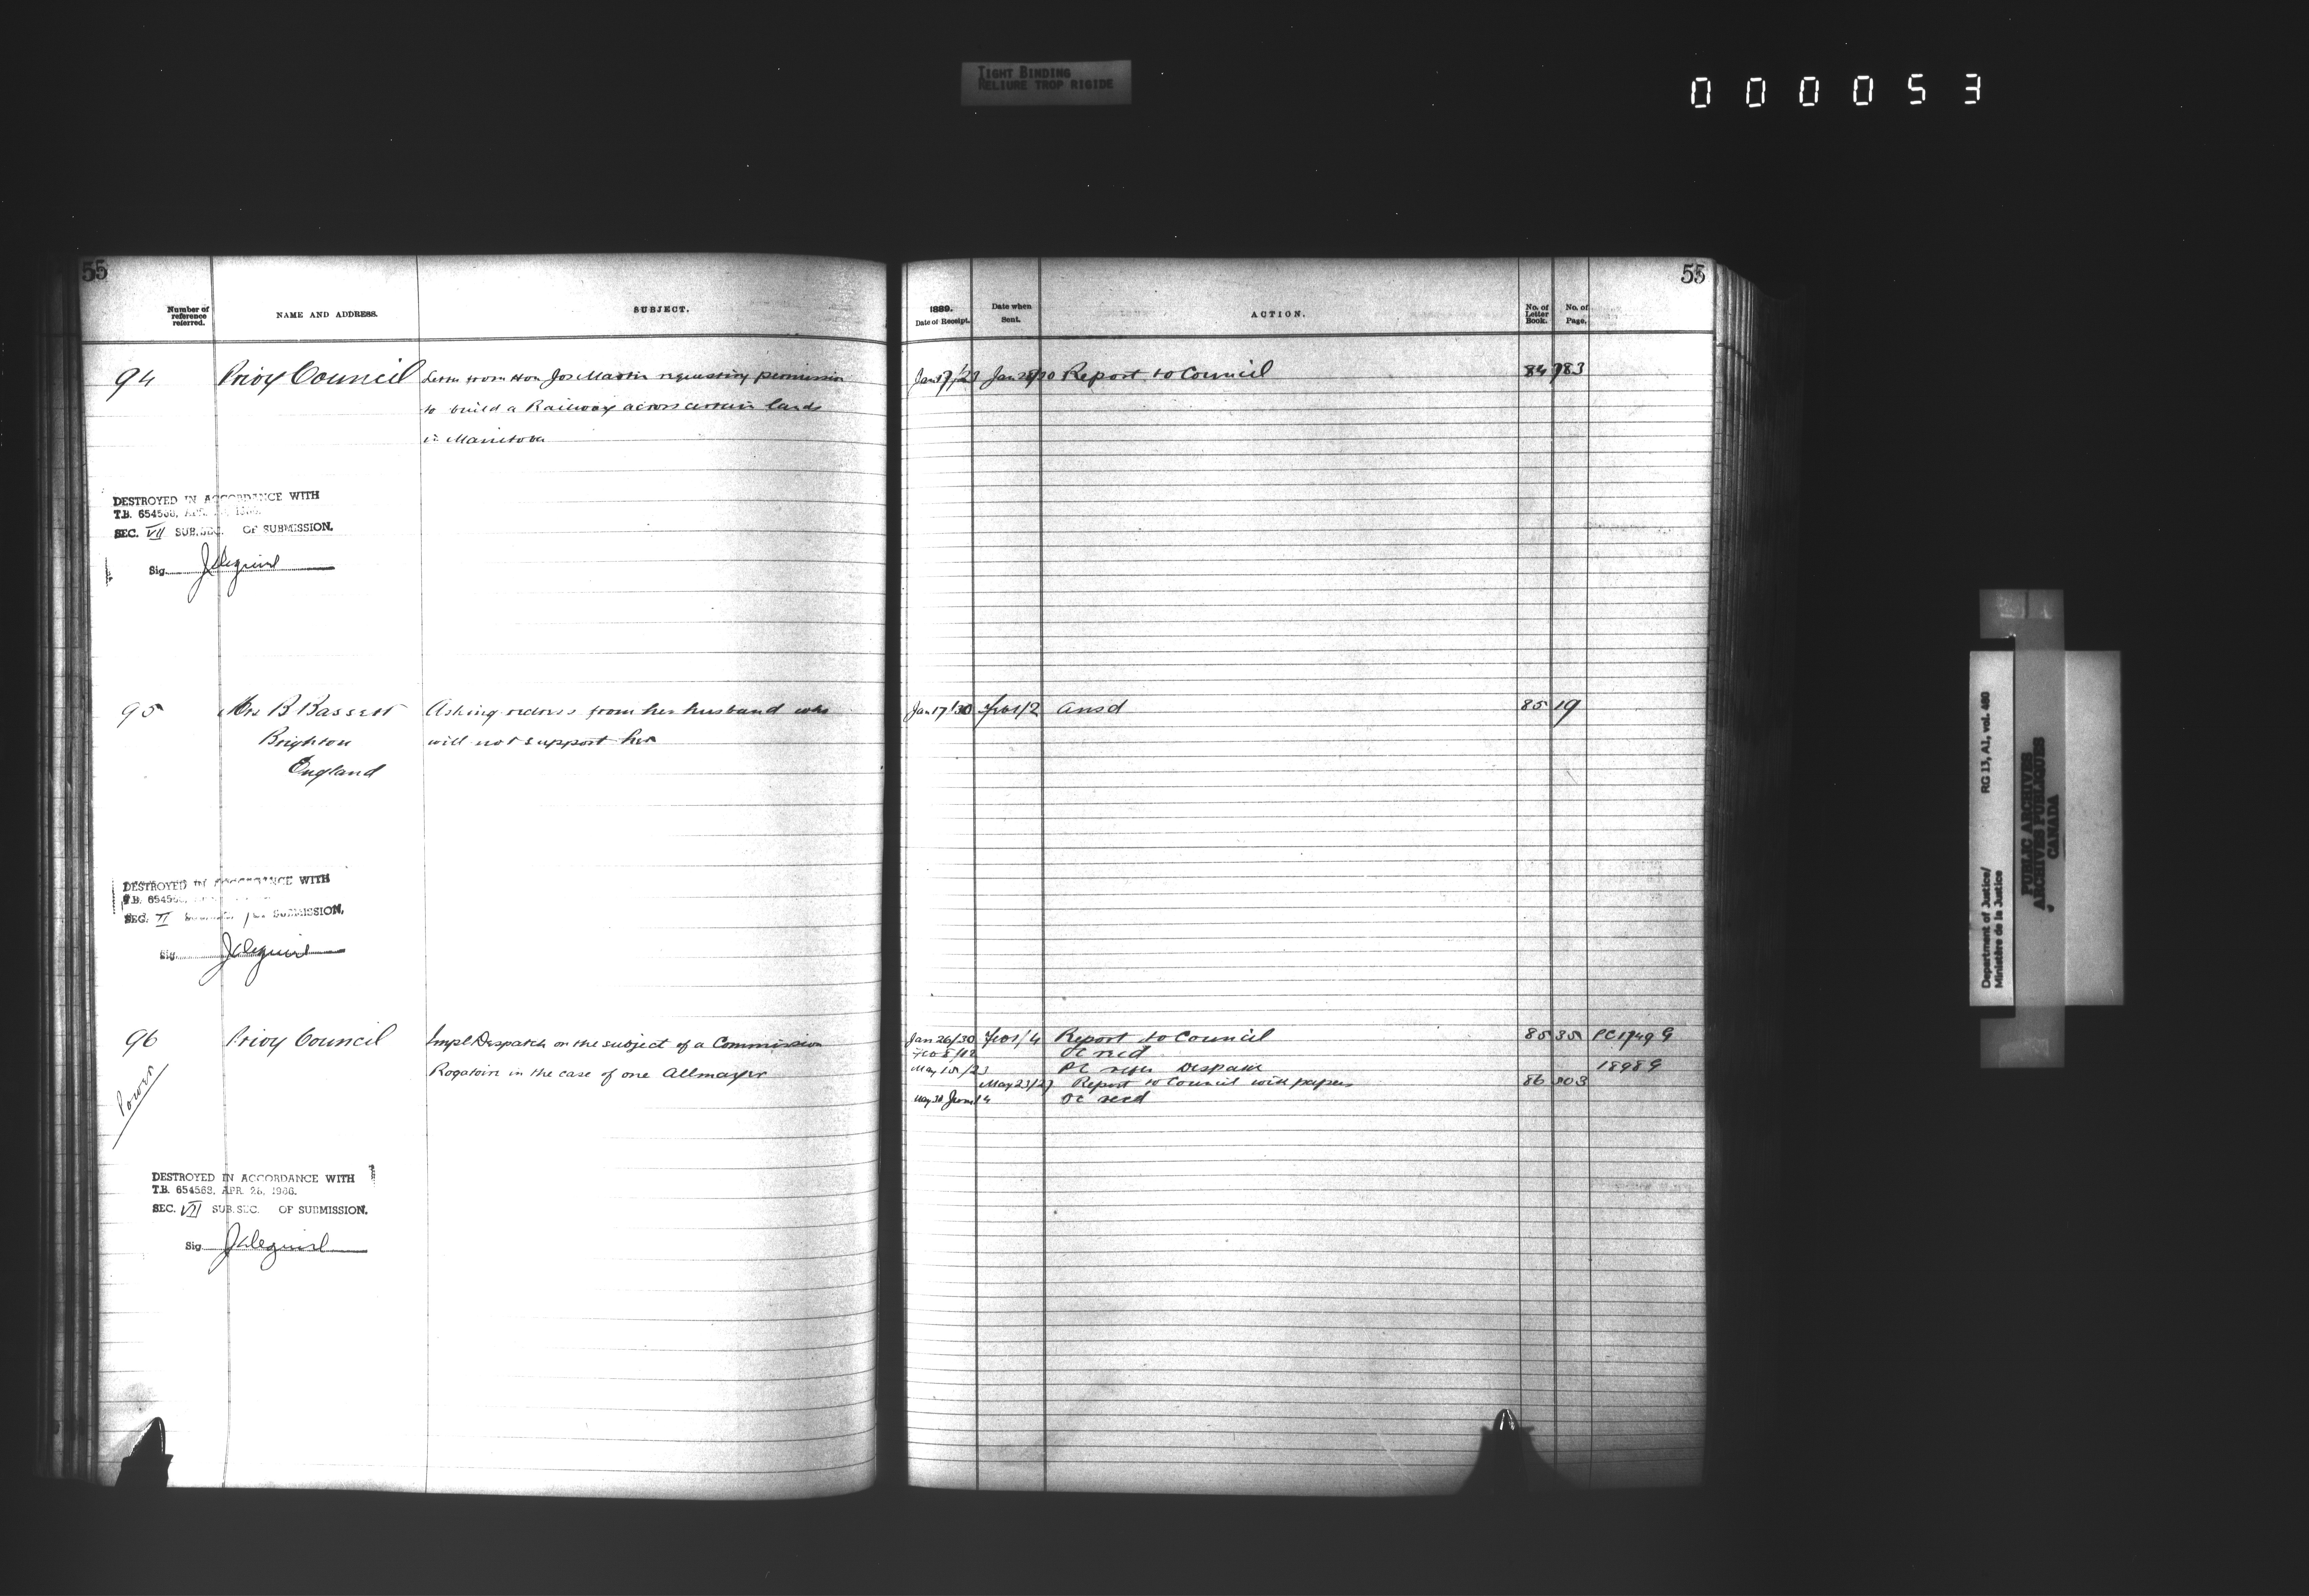 TIGHT BINDING
RELIURE TROP RIGIDE
000053
55
Number of reference referred.
NAME AND ADDRESS.
SUBJECT.
94 Privy Council Letter from Hon Jos Martin requesting permission
to build a Railway across certain lands
in Manitoba
DESTROYED IN ACCORDANCE WITH
T.B. 654568, APR.
SEC. VII SUB.SEC. OF SUBMISSION.
Sig.
95 Mrs B Bassett Asking redress from her husband who
Brighton will not support her
England
DESTROYED IN ACCORDANCE WITH
T.B. 6545
SEC. VI OF SUBMISSION.
Sig.
96 Privy Council Impl Despatch on the subject of a Commission
Rogatoire in the case of one Allmayer
Power
DESTROYED IN ACCORDANCE WITH
T.B. 654568, APR. 26, 1966.
SEC. VII SUB.SEC. OF SUBMISSION.
Sig.
55
1889.
Date of Receipt.
Date when Sent.
ACTION.
No. of Letter Book.
No. of Page.
Report to Council 84 783
Jan 17/30 Feb 1/2 ansd 85 19
Jan 26/30 Feb 1/4 Report to Council 85 35 PC 1749 G
Feb 8/12 OC recd
May 15/23 PC refer Despatch 1898 G
May 23/27 Report to Council with papers 86 303
May 30 June 14 OC recd
Department of Justice/
Ministère de la Justice
RG 13, A1, vol. 460
PUBLIC ARCHIVES
ARCHIVES PUBLIQUES
CANADA